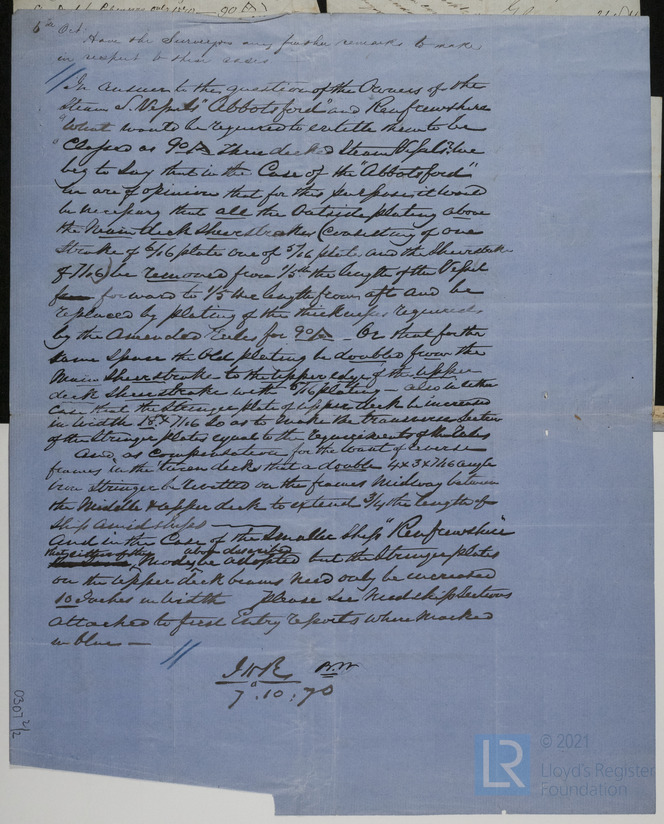 6th Oct.
Have the Surveyors any further remarks to make
in respect to these cases
In answer to the question of the Owners of the
Steam S. Vessels "Abbotsford" and Renfrewshire
"What would be required to entitle them to be
"Classed as 90 A Three decked Steam Vessel", we
beg to say that in the Case of the "Abbotsford"
we are of opinion that for this purpose it would
be necessary that all the Outside plating above
the Main deck Sheerstrake (consisting of one
Strake of 6/16 plate one of 5/16 plate and the Sheerstrake
of 7/16) be removed from 1/5th the length of the Vessel
forward to 1/5 the length from aft and be
replaced by plating of the thickness required
by the Amended Rules for 90 A - Or that for the
same space the Old plating be doubled from the
Main Sheerstrake to the Upper edge of the Upper
deck Sheerstrake with 5/16 plates - also in either
case that the Stringer plate of Upper deck be increased
in width 18 x 7/16 so as to make the transverse Section
of the Stringer plates equal to the requirements of the Rules
and as compensation for the want of reverse
frames in the tween decks that a double 4x3x7/16 angle
iron Stringer be rivetted on the frames Midway between
the Middle & upper deck to extend 3/4 the length of
Ship amidships
And in the Case of the smaller Ship "Renfrewshire"
that either of the above described
Modes be adopted but the Stringer plates
on the Upper deck beams need only be increased
10 Inches in Width please see Midship Sections
attached to first Entry reports where Marked
in blue -
7.10.70
0307 2/2
LR
© 2021
Lloyd's Register
Foundation